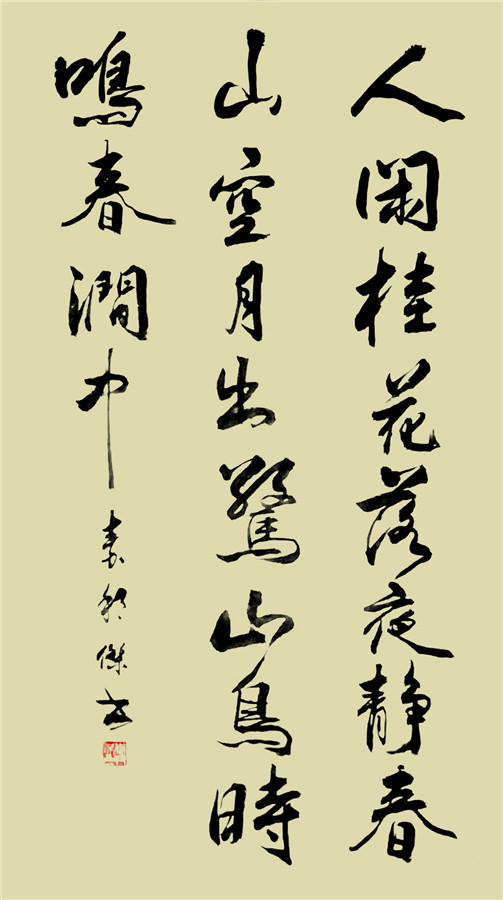 人閑桂花落夜静春
山空月出驚山鳥時
鳴春澗中
傑